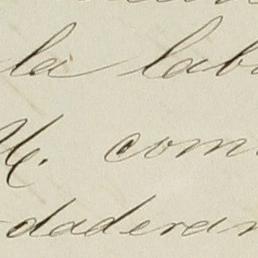 la lab
M. com
daderan